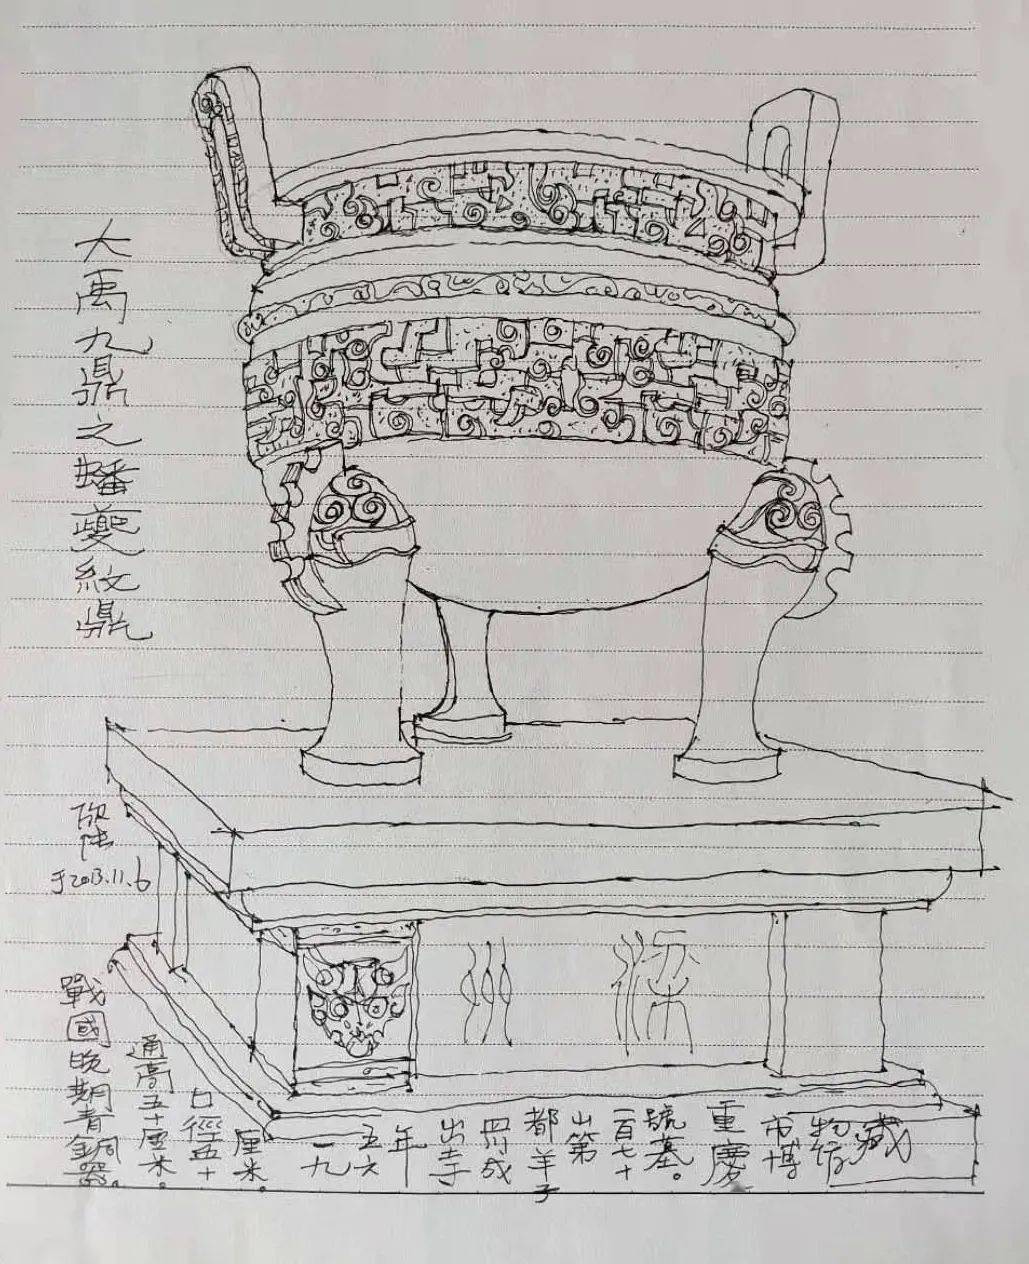 大禹九鼎之蟠夔紋鼎
于2013.11.6
梁州
戰國晚期青銅器。
通高五十厘米。
口徑五十
厘米。
一九
五六
年
出土于
四川成
都羊子
山第
一百七十
號墓。
重慶
市博
物館
藏